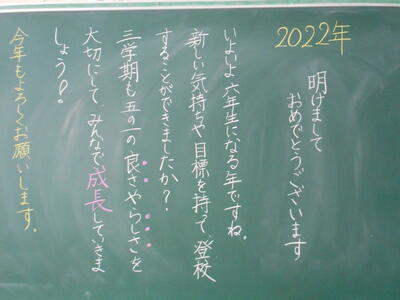 2022年
明けまして
おめでとうございます
いよいよ六年生になる年ですね。
新しい気持ちや目標を持って、登校
することができましたか?
三学期も五の一の良さやらしさを
大切にして、みんなで成長していきま
しょう。
今年もよろしくお願いします。